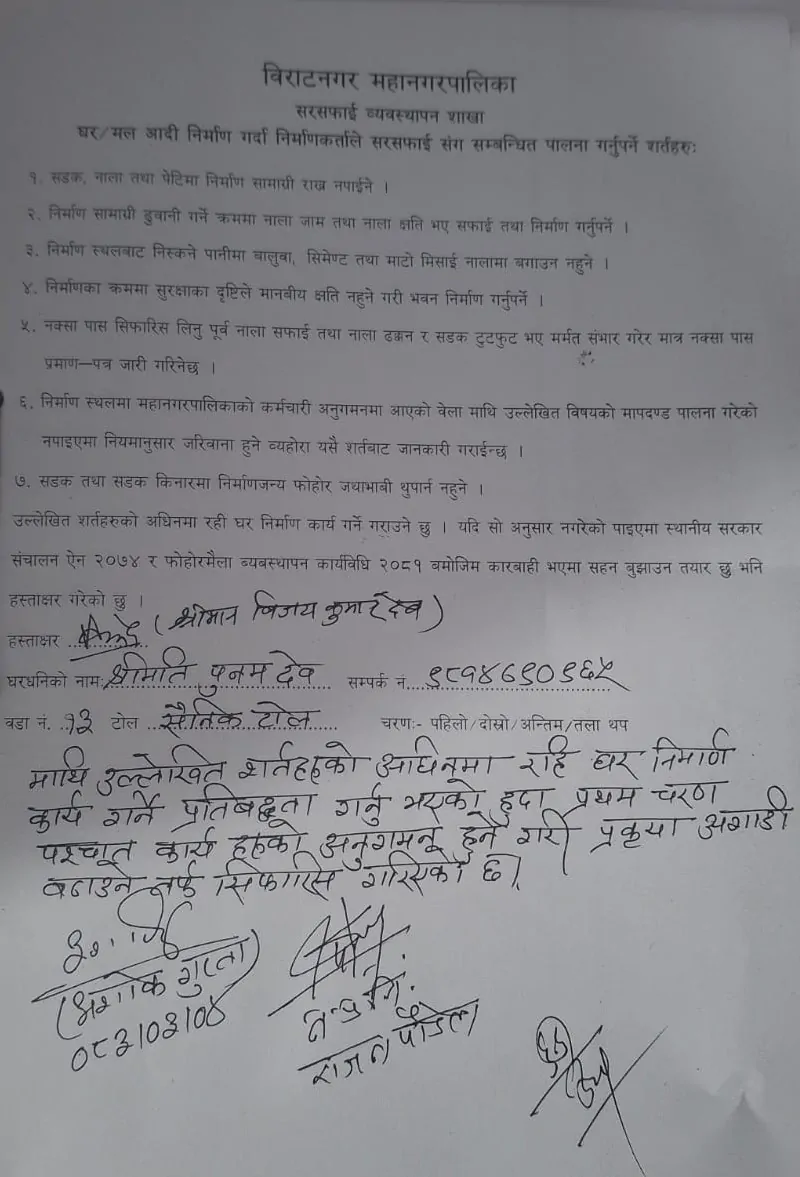 विराटनगर महानगरपालिका
सरसफाई व्यवस्थापन शाखा
घर/मल आदी निर्माण गर्दा निर्माणकर्ताले सरसफाई संग सम्बन्धित पालना गर्नुपर्ने शर्तहरुः
१. सडक, नाला तथा पेटिमा निर्माण सामाग्री राख्न नपाईने ।
२. निर्माण सामाग्री ढुवानी गर्ने क्रममा नाला जाम तथा नाला क्षति भए सफाई तथा निर्माण गर्नुपर्ने ।
३. निर्माण स्थलबाट निस्कने पानीमा बालुवा, सिमेण्ट तथा माटो मिसाई नालामा बगाउन नहुने ।
४. निर्माणका क्रममा सुरक्षाका दृष्टिले मानवीय क्षति नहुने गरी भवन निर्माण गर्नुपर्ने ।
५. नक्सा पास सिफारिस लिनु पूर्व नाला सफाई तथा नाला ढक्कन र सडक टुटफुट भए मर्मत संभार गरेर मात्र नक्सा पास
प्रमाण–पत्र जारी गरिनेछ ।
६. निर्माण स्थलमा महानगरपालिकाको कर्मचारी अनुगमनमा आएको वेला माथि उल्लेखित विषयको मापदण्ड पालना गरेको
नपाइएमा नियमानुसार जरिवाना हुने व्यहोरा यसै शर्तबाट जानकारी गराईन्छ ।
७. सडक तथा सडक किनारमा निर्माणजन्य फोहोर जथाभाबी थुपार्न नहुने ।
उल्लेखित शर्तहरुको अधिनमा रही घर निर्माण कार्य गर्ने गराउने छु । यदि सो अनुसार नगरेको पाइएमा स्थानीय सरकार
संचालन ऐन २०७४ र फोहोरमैला व्यवस्थापन कार्यविधि २०८१ बमोजिम कारबाही भएमा सहन बुझाउन तयार छु भनि
हस्ताक्षर गरेको छु ।
हस्ताक्षर (श्रीमान विजय कुमार देव)
घरधनिको नामः श्रीमिति पुनम देव सम्पर्क नं. ९८१४६९०९६५
वडा नं. १३ टोल सैनिक टोल चरणः- पहिलो/दोस्रो/अन्तिम/तला थप
माथि उल्लेखित शर्तहरुको अधिनमा रहि घर निमार्ण
कार्य गर्ने प्रतिबद्धता गर्नु भएको हुदा प्रथम चरण
पश्चात कार्य हरुको अनुगमन हुने गरी प्रकृया अगाडी
बढाउने तर्फ सिफारिस गरिएको छ।
(अशोक गुप्ता)
०८२।०२।०४
राजन पौडेल